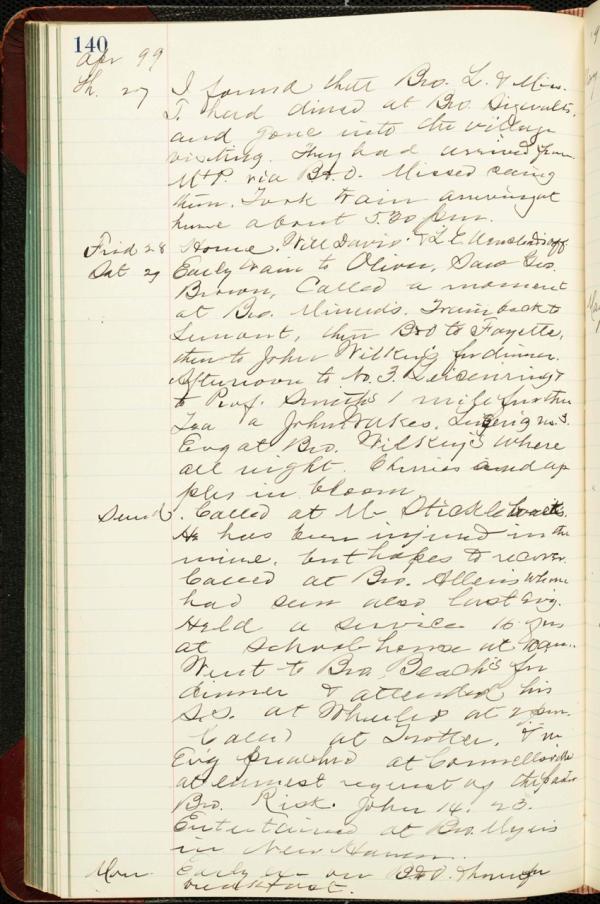 140
Apr 99
Th. 27 I found that Bro. L. & Mrs.
L. had dined at Bro. Sigwalts,
and gone into the village
visiting. They had arrived from
Mt P. via B&O. Missed seeing
them. Took train arriving at
home about 5.30 p.m.
Frid 28 Home. Will Davis & L. E. off
Sat 29 Early train to Oliver, Saw Geo.
Brown, Called a moment
at Bro. Minerd's. Train back to
Lemont, then B&O to Fayette,
then to John Wilkey's for dinner.
Afternoon to No. 3. Leisenring &
to Prof. Smith's 1 mile further
Tea a John Wakes, Leisenring No 3.
Evg at Bro. Wilkey's where
all night. Cherries and ap
ples in bloom
Sund. Called at Mr Stickle
He has been injured in the
mine, but hopes to recover.
Called at Bro. Allens whom
had seen also last Evg.
Held a service
at school house at 10 am.
Went to Bro. Beach's for
dinner & attended his
S.S. at Wheeler at 2 p.m.
Called at Trotter, & in
Ev'g preached at Connellsville
at earnest request of the pastor
Bro. Risk. John 14. 23.
Entertained at Bro. Myers
in New Haven.
Mon. Early on B&O. & home for
breakfast.